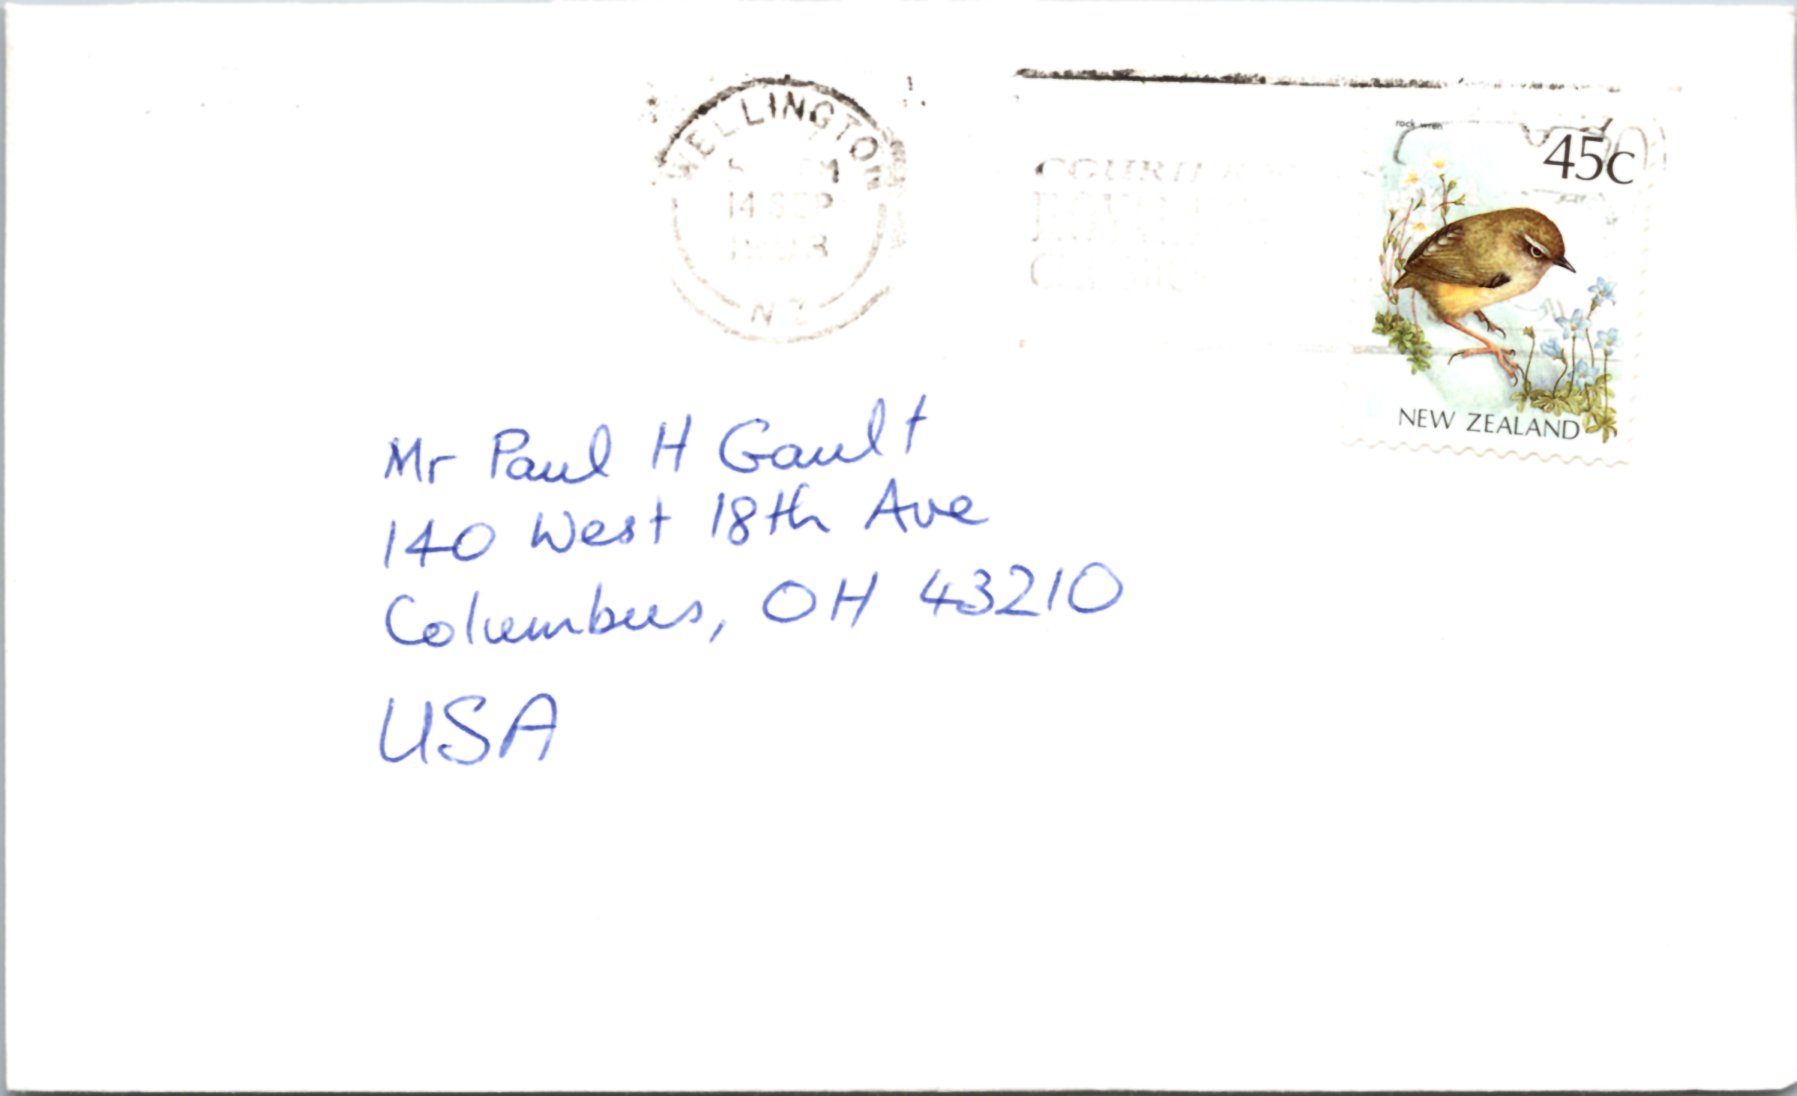 WELLINGTON
14 SEP
NZ
rock wren
45c
NEW ZEALAND
Mr Paul H Gault
140 West 18th Ave
Columbus, OH 43210
USA